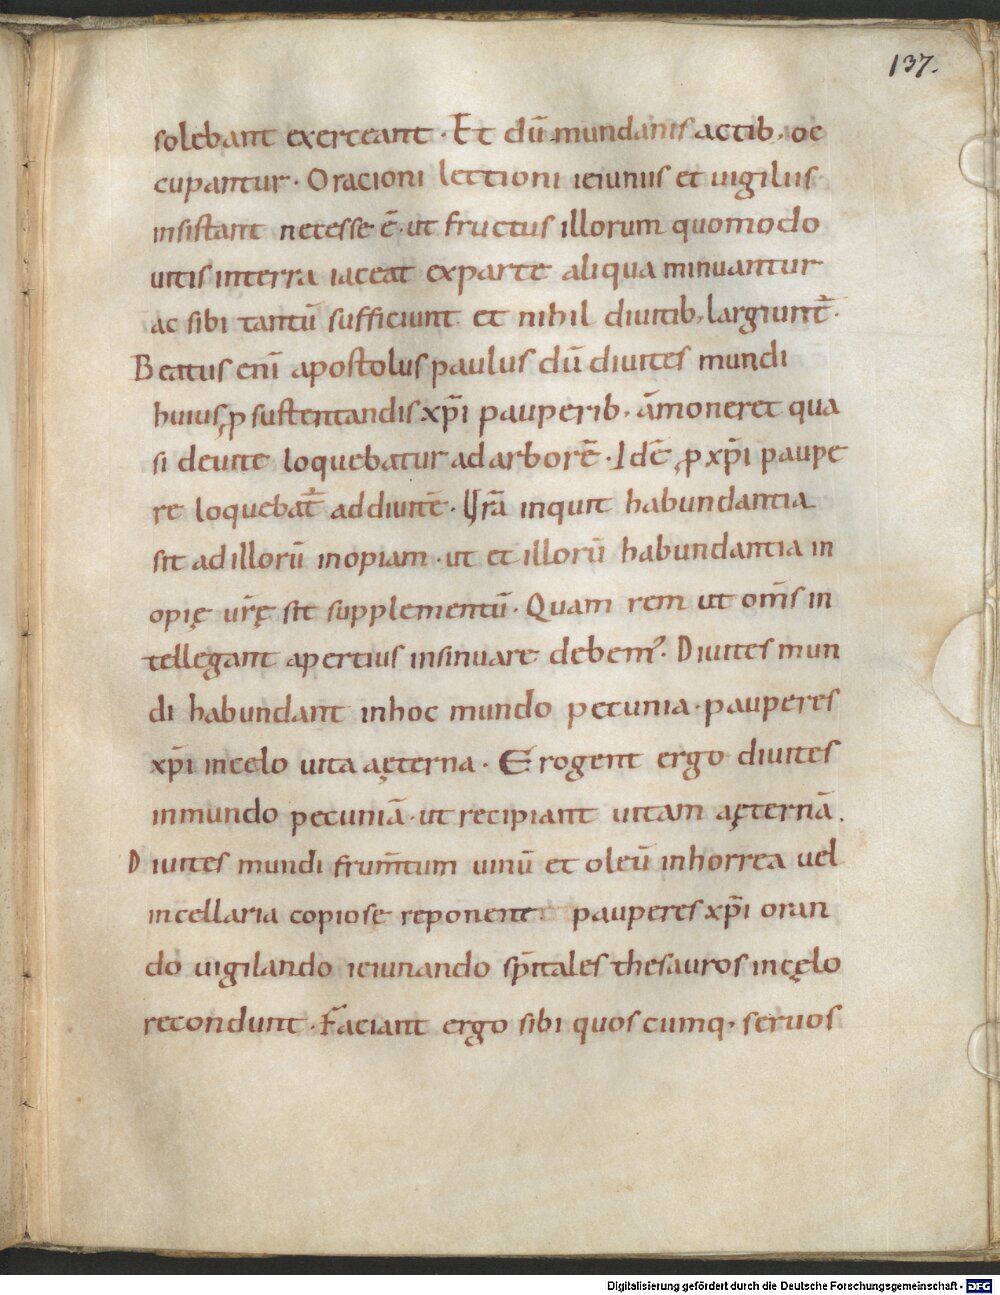 137.
solebant exerceant · Et dū mundanis actib; oc
cupantur · Oracioni lectioni ieiuniis et uigiliis
insistant necesse ē · ut fructus illorum quomodo
uitis interra iaceat exparte aliqua minuantur
ac sibi tantū sufficiunt et nihil diuitib; largiunt̄ ·
Beatus enī apostolus paulus dū diuites mundi
huius ꝓ sustentandis xp̄i pauperib; āmoneret qua
si deuite loquebatur ad arborē · Idē ꝓ xp̄i paupe
re loquebat̄ ad diuitē · Ur̄a inquit habundantia
sit ad illorū inopiam · ut et illorū habundantia in
opię ur̄ę sit supplementū · Quam rem ut om̄s in
tellegant apertius insinuare debem᾿ · Diuites mun
di habundant inhoc mundo pecunia · pauperes
xp̄i incelo uita aęterna · Erogent ergo diuites
inmundo pecuniā · ut recipiant uitam aęternā .
Diuites mundi frum̄tum uinū et oleū inhorrea uel
incellaria copiose reponent pauperes xp̄i oran
do uigilando ieiunando sp̄itales thesauros incęlo
recondunt · Faciant ergo sibi quoscumq; seruos
Digitalisierung gefördert durch die Deutsche Forschungsgemeinschaft - DFG